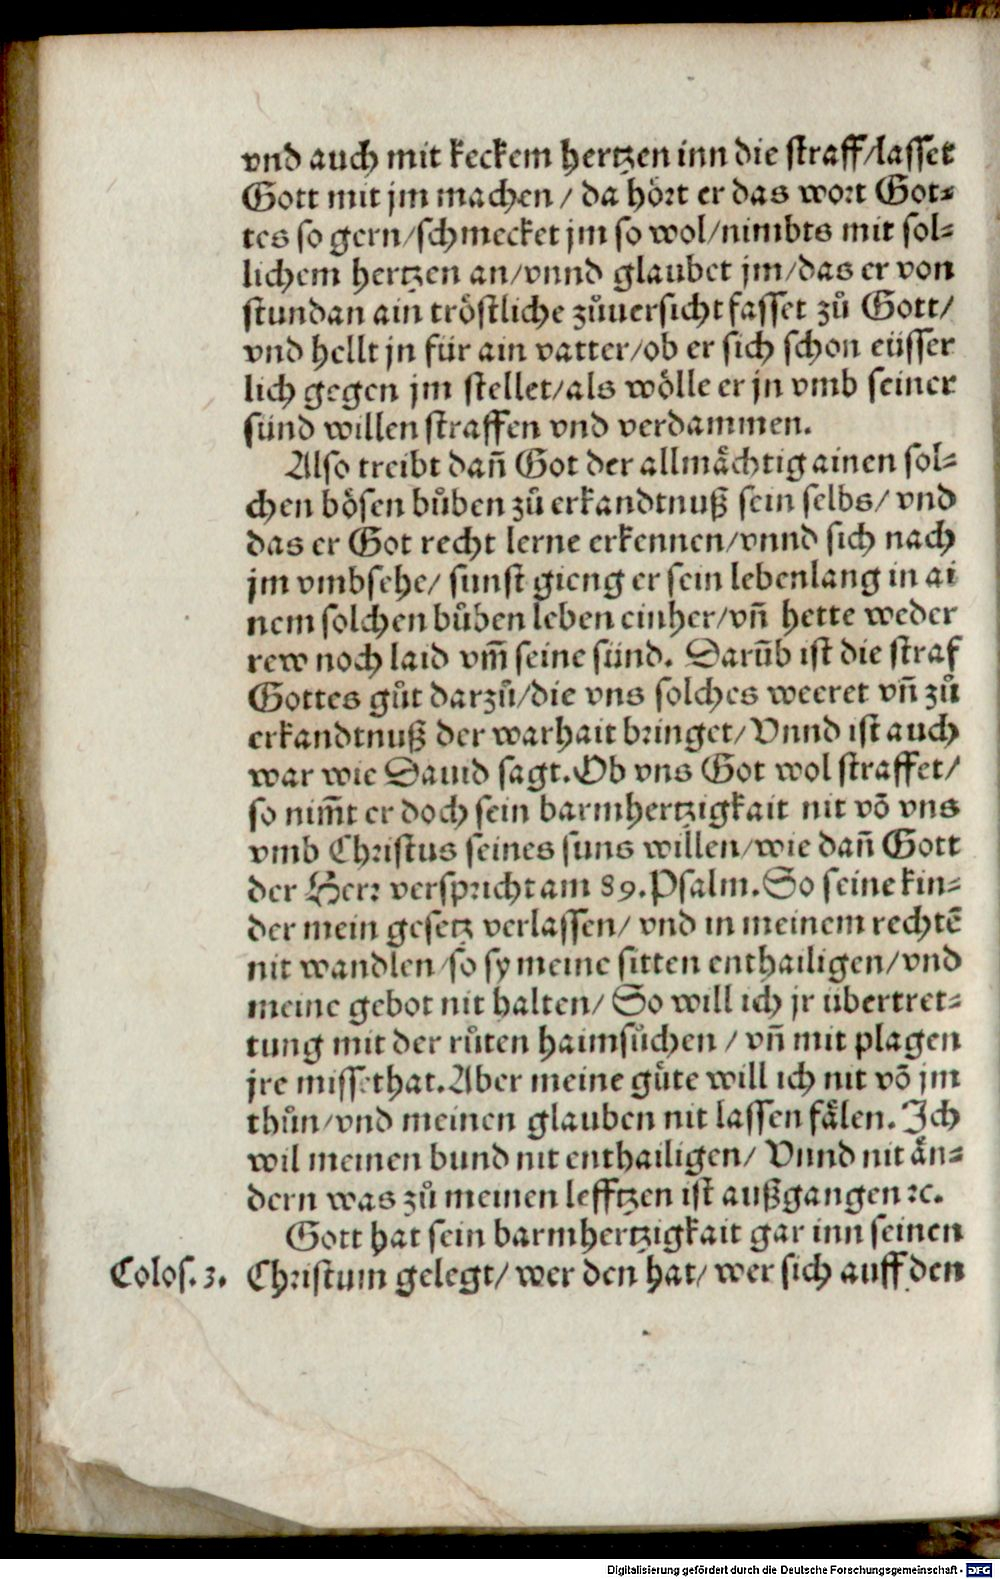 vnd auch mit keckem hertzen inn die straff/lasset
Gott mit jm machen / da hört er das wort Got⸗
tes so gern/schmecket jm so wol/nimbts mit sol⸗
lichem hertzen an/vnnd glaubet jm/das er von
stundan ain tröstliche zůuersicht fasset zů Gott/
vnd hellt jn für ain vatter/ob er sich schon eüsser
lich gegen jm stellet/als wölle er jn vmb seiner
sünd willen straffen vnd verdammen.
Also treibt dañ Got der allmächtig ainen sol⸗
chen bösen bůben zů erkandtnuß sein selbs/ vnd
das er Got recht lerne erkennen/vnnd sich nach
jm vmbsehe/ sunst gieng er sein lebenlang in ai
nem solchen bůben leben einher/vñ hette weder
rew noch laid vm̃ seine sünd. Darũb ist die straf
Gottes gůt darzů/die vns solches weeret vñ zů
erkandtnuß der warhait bringet/ Vnnd ist auch
war wie Dauid sagt. Ob vns Got wol straffet/
so nim̃t er doch sein barmhertzigkait nit võ vns
vmb Christus seines suns willen/wie dañ Gott
der Herr verspricht am 89. Psalm. So seine kin⸗
der mein gesetz verlassen/ vnd in meinem rechtẽ
nit wandlen/so sy meine sitten enthailigen/vnd
meine gebot nit halten/ So will ich jr übertret⸗
tung mit der růten haimsůchen / vñ mit plagen
jre missethat. Aber meine güte will ich nit võ jm
thůn/vnd meinen glauben nit lassen fälen. Ich
wil meinen bund nit enthailigen/ Vnnd nit än⸗
dern was zů meinen lefftzen ist außgangen ꝛc.
Gott hat sein barmhertzigkait gar inn seinen
Colos. 3. Christum gelegt/ wer den hat/ wer sich auff den
Digitalisierung gefördert durch die Deutsche Forschungsgemeinschaft - DFG